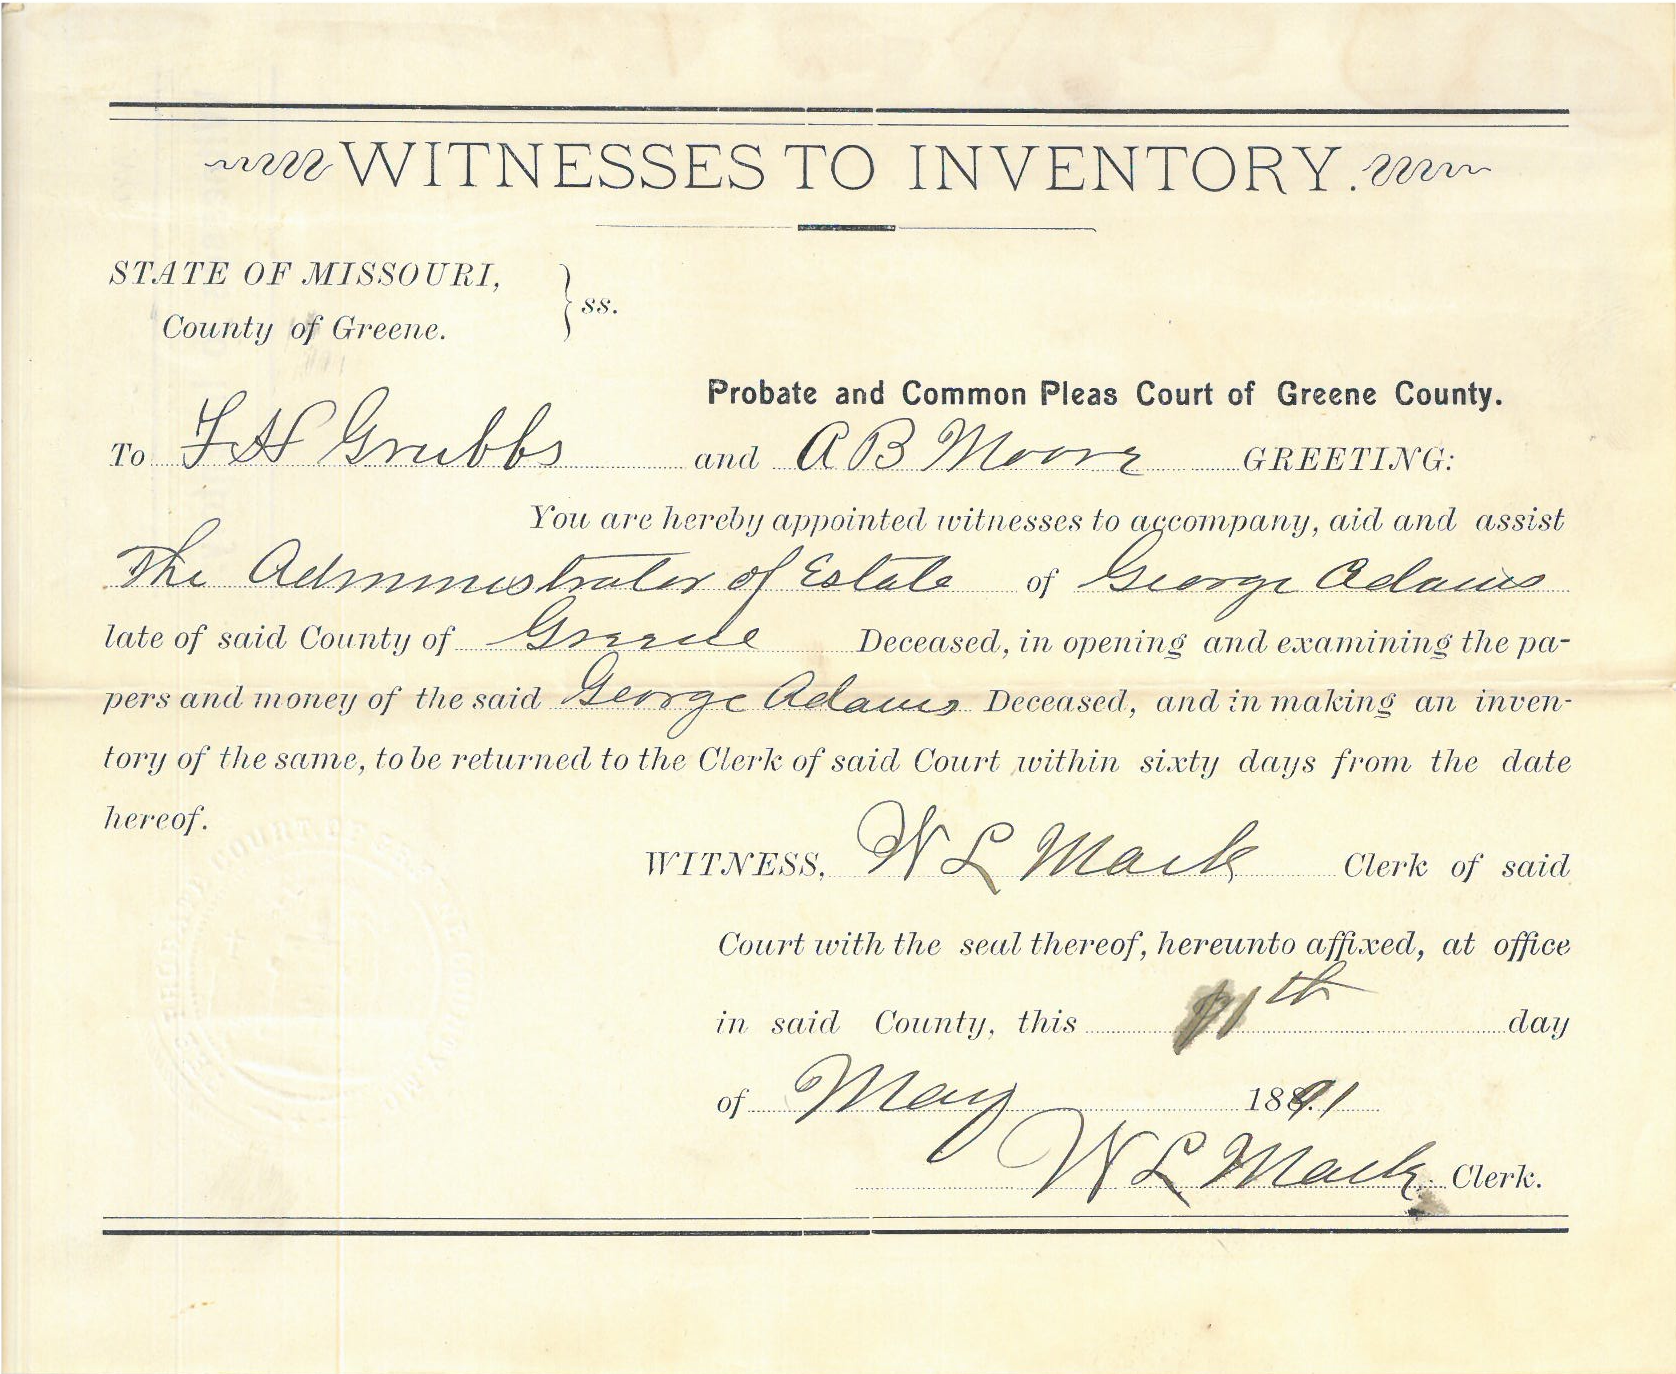 WITNESSES TO INVENTORY.
STATE OF MISSOURI,
County of Greene. } ss.
Probate and Common Pleas Court of Greene County.
To F H Grubbs and A B Moore GREETING:
You are hereby appointed witnesses to accompany, aid and assist
The Administrator of Estate of George Adams
late of said County of Greene Deceased, in opening and examining the pa-
pers and money of the said George Adams Deceased, and in making an inven-
tory of the same, to be returned to the Clerk of said Court within sixty days from the date
hereof.
WITNESS, W L Mack Clerk of said
Court with the seal thereof, hereunto affixed, at office
in said County, this 11th day
of May 1891
W L Mack Clerk.